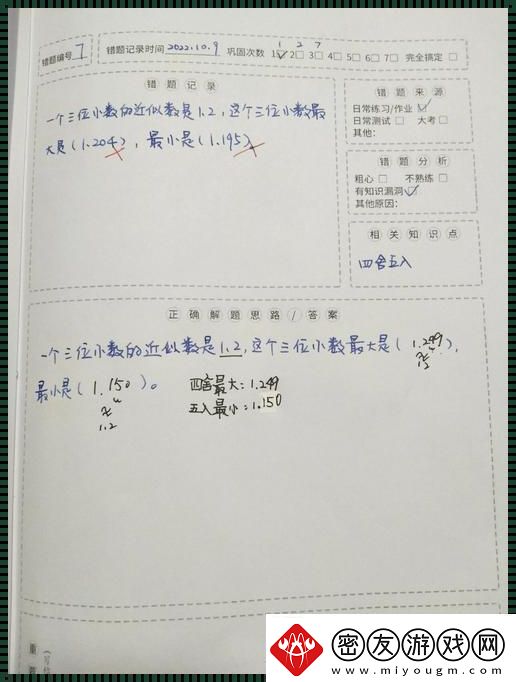 错题编号 7
错题记录时间 2022.10.9 巩固次数 1☑ 2□ 3□ 4□ 5□ 6□ 7□ 完全搞定 □
1 2 7
错题记录
一个三位小数的近似数是1.2，这个三位小数最
大是(1.204)，最小是(1.195)。
错题来源
日常练习/作业 ☑
日常测试 □ 大考 □
其他：
错题分析
粗心 □ 不熟练 □
有知识漏洞 ☑
其他原因：
相关知识点
四舍五入
正确解题思路/答案
一个三位小数的近似数是1.2，这个三位小数最大是(1.249)，
≈
1.2
最小是(1.150)。
≈
1.2
四舍最大：1.249
五入最小：1.150
密友游戏网
www.miyougm.com